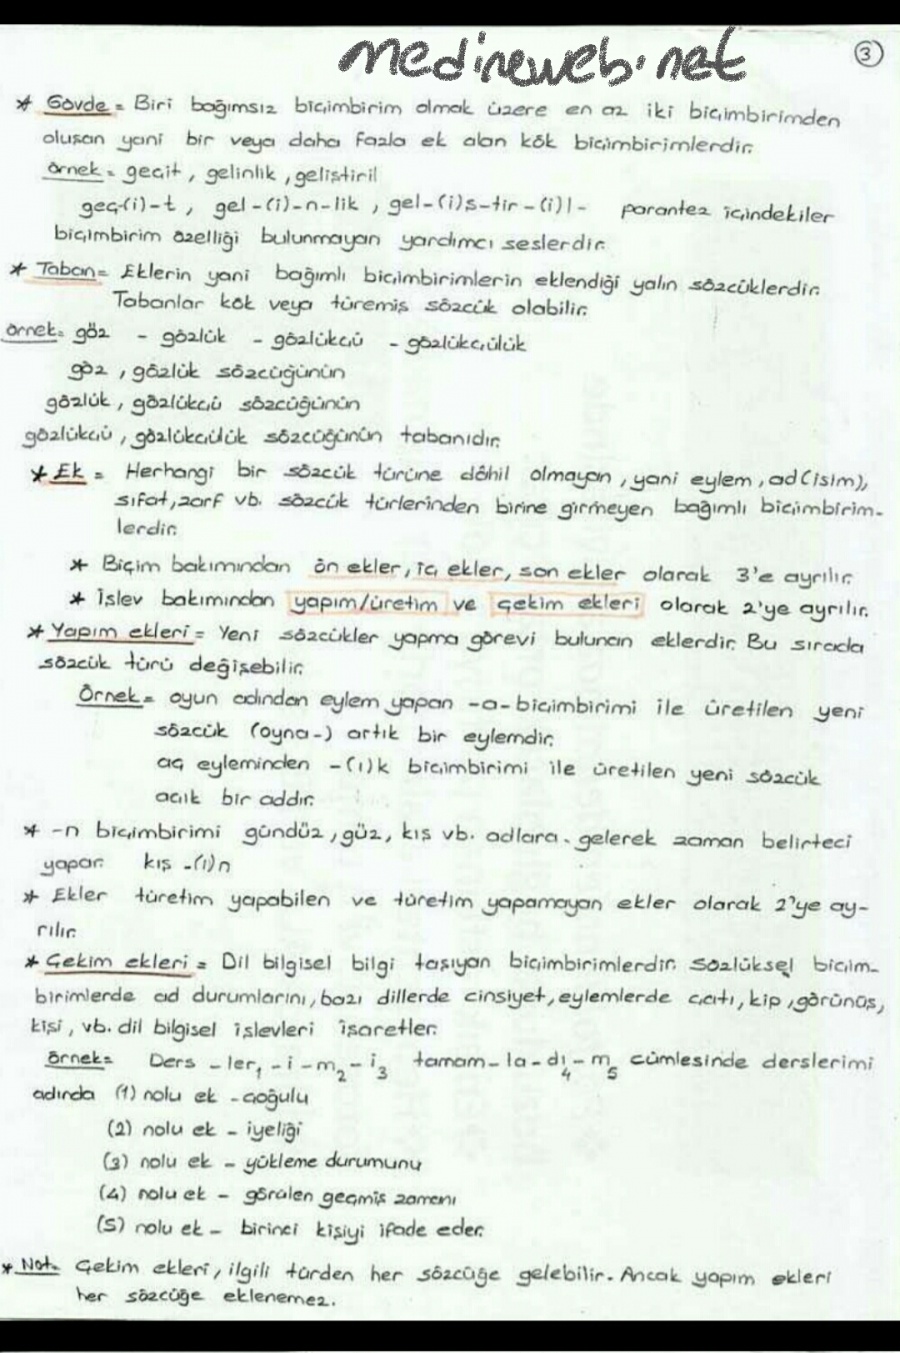 medineweb.net
3
* Gövde = Biri bağımsız biçimbirim olmak üzere en az iki biçimbirimden
oluşan yani bir veya daha fazla ek alan kök biçimbirimlerdir.
Örnek = geçit, gelinlik, geliştiril
geç-(i)-t, gel-(i)-n-lik, gel-(i)ş-tir-(i)l- parantez içindekiler
biçimbirim özelliği bulunmayan yardımcı seslerdir.
* Taban = Eklerin yani bağımlı biçimbirimlerin eklendiği yalın sözcüklerdir.
Tabanlar kök veya türemiş sözcük olabilir.
Örnek = göz - gözlük - gözlükçü - gözlükçülük
göz, gözlük sözcüğünün
gözlük, gözlükçü sözcüğünün
gözlükçü, gözlükçülük sözcüğünün tabanıdır.
* Ek = Herhangi bir sözcük türüne dâhil olmayan, yani eylem, ad (isim),
sıfat, zarf vb. sözcük türlerinden birine girmeyen bağımlı biçimbirim-
lerdir.
* Biçim bakımından ön ekler, iç ekler, son ekler olarak 3'e ayrılır.
* İşlev bakımından yapım/üretim ve çekim ekleri olarak 2'ye ayrılır.
* Yapım ekleri = Yeni sözcükler yapma görevi bulunan eklerdir. Bu sırada
sözcük türü değişebilir.
Örnek = oyun adından eylem yapan -a- biçimbirimi ile üretilen yeni
sözcük (oyna-) artık bir eylemdir.
aç eyleminden -(ı)k biçimbirimi ile üretilen yeni sözcük
açık bir addır.
* -n biçimbirimi gündüz, güz, kış vb. adlara gelerek zaman belirteci
yapar. kış -(ı)n
* Ekler türetim yapabilen ve türetim yapamayan ekler olarak 2'ye ay-
rılır.
* Çekim ekleri = Dil bilgisel bilgi taşıyan biçimbirimlerdir. Sözlüksel biçim-
birimlerde ad durumlarını, bazı dillerde cinsiyet, eylemlerde çatı, kip, görünüş,
kişi, vb. dil bilgisel işlevleri işaretler.
Örnek = Ders -ler₁ -i -m₂ -i₃ tamam-la-dı₄-m₅ cümlesinde derslerimi
adında (1) nolu ek - çoğulu
(2) nolu ek - iyeliği
(3) nolu ek - yükleme durumunu
(4) nolu ek - görülen geçmiş zamanı
(5) nolu ek - birinci kişiyi ifade eder.
* Not = Çekim ekleri, ilgili türden her sözcüğe gelebilir. Ancak yapım ekleri
her sözcüğe eklenemez.